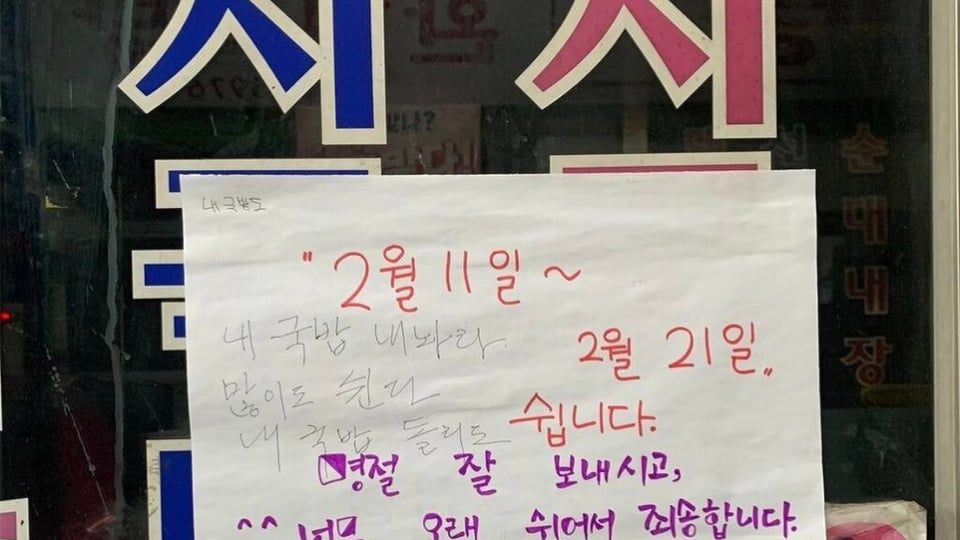 내 국밥도
" 2월 11일 ~
내 국밥 내놔라
2월 21일 "
많이도 쉰다
쉽니다.
내 국밥 돌리도
명절 잘 보내시고,
^^ 너무 오래 쉬어서 죄송합니다.
순대내장